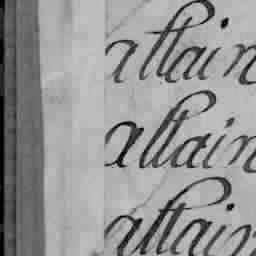 attain
attain
attain